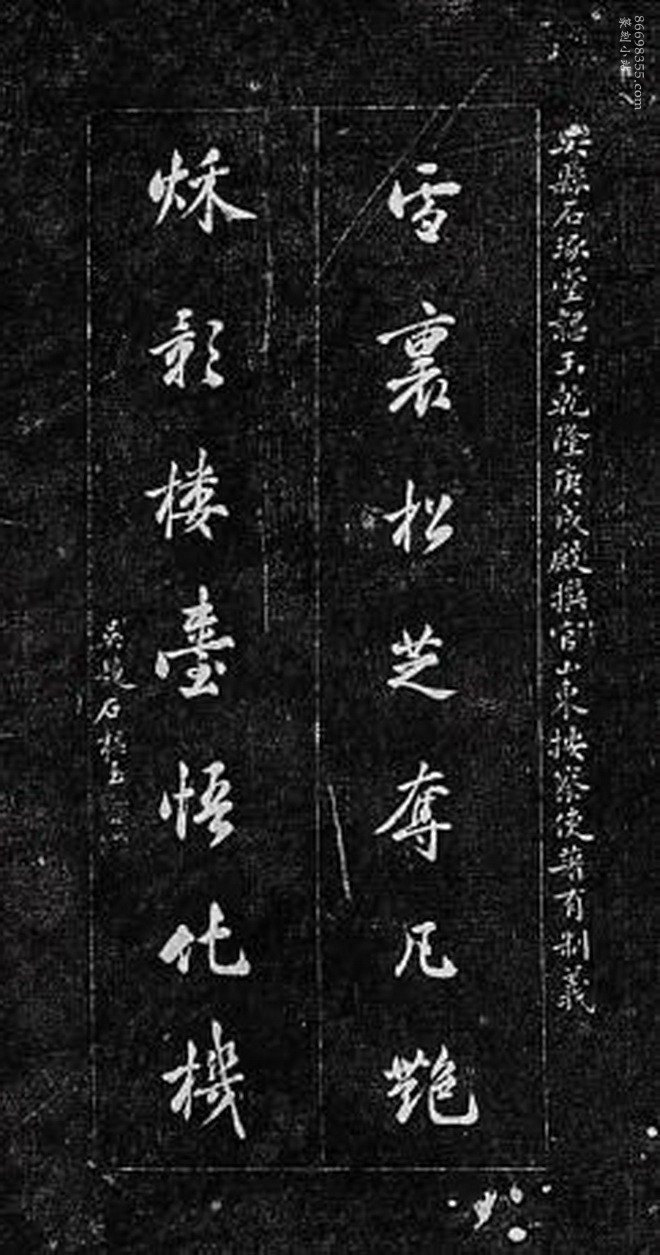 吳縣石琢堂韞玉乾隆庚戌殿撰官山東按察使著有制義
雪裏松芝奪凡艷
秌影樓臺悟化機
吳門石韞玉
86698355.com
篆刻小站